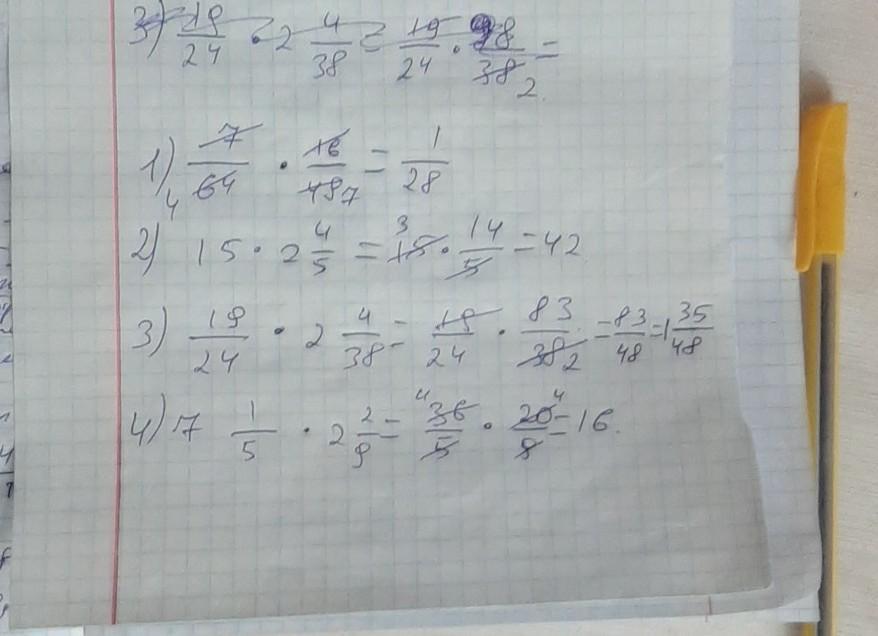 3) 19/24 · 2 4/38 = 19/24 · 98/38 2 =
1) 7/64 4 · 16/49 7 = 1/28
2) 15 · 2 4/5 = 15 3 · 14/5 = 42
3) 19/24 · 2 4/38 = 19/24 · 83/38 2 = 83/48 = 1 35/48
4) 7 1/5 · 2 2/9 = 4 36/5 · 20 4/9 = 16.